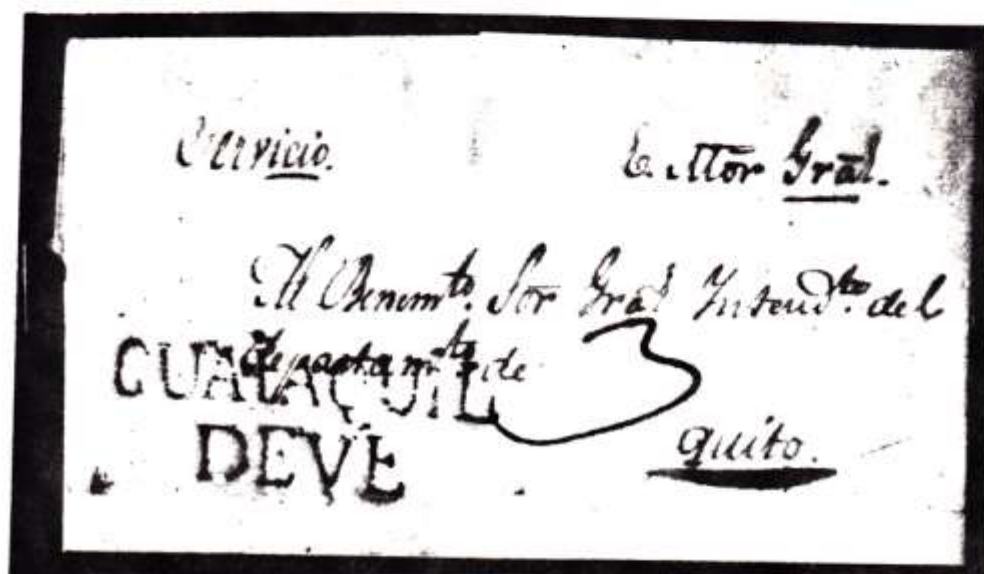 Servicio.
E. Mor Grāl.
Al Benemto. Sor Grāl Intendte. del
Departamto. de
GUAIAQUIL
3
DEVE
Quito.